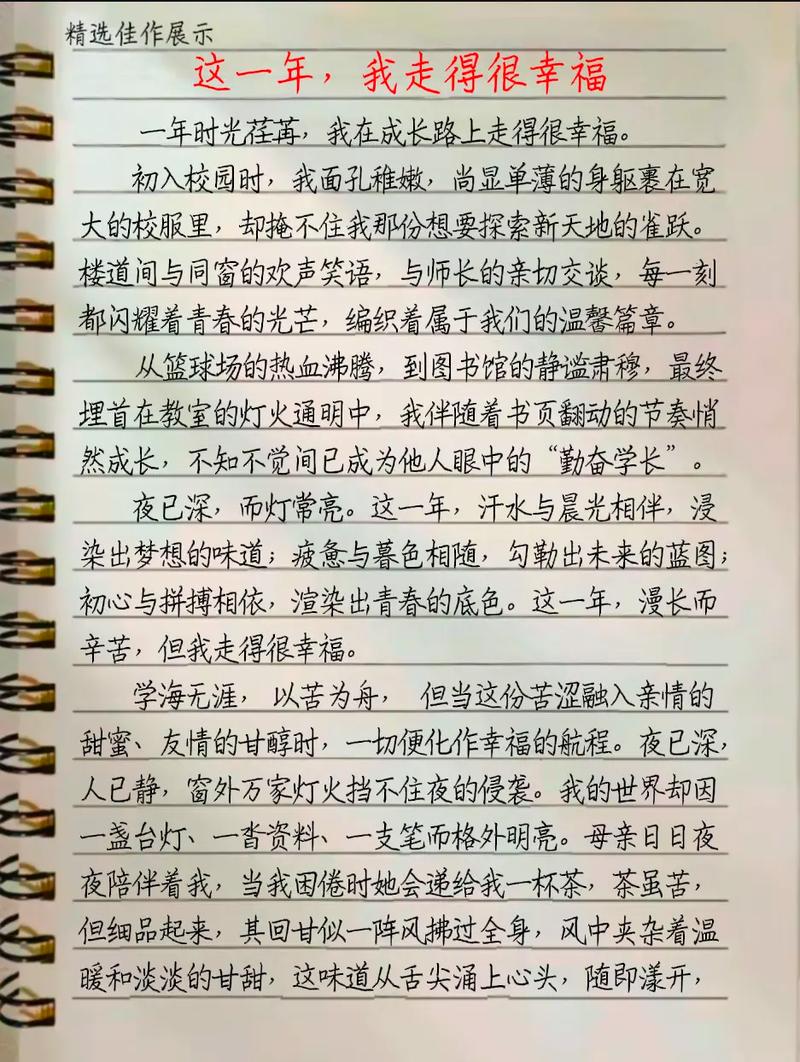 精选佳作展示
这一年，我走得很幸福
一年时光荏苒，我在成长路上走得很幸福。
初入校园时，我面孔稚嫩，尚显单薄的身躯裹在宽
大的校服里，却掩不住我那份想要探索新天地的雀跃。
楼道间与同窗的欢声笑语，与师长的亲切交谈，每一刻
都闪耀着青春的光芒，编织着属于我们的温馨篇章。
从篮球场的热血沸腾，到图书馆的静谧肃穆，最终
埋首在教室的灯火通明中，我伴随着书页翻动的节奏悄
然成长，不知不觉间已成为他人眼中的“勤奋学长”。
夜已深，而灯常亮。这一年，汗水与晨光相伴，浸
染出梦想的味道；疲惫与暮色相随，勾勒出未来的蓝图；
初心与拼搏相依，渲染出青春的底色。这一年，漫长而
辛苦，但我走得很幸福。
学海无涯，以苦为舟，但当这份苦涩融入亲情的
甜蜜、友情的甘醇时，一切便化作幸福的航程。夜已深，
人已静，窗外万家灯火挡不住夜的侵袭。我的世界却因
一盏台灯、一沓资料、一支笔而格外明亮。母亲日日夜
夜陪伴着我，当我困倦时她会递给我一杯茶，茶虽苦，
但细品起来，其回甘似一阵风拂过全身，风中夹杂着温
暖和淡淡的甘甜，这味道从舌尖涌上心头，随即漾开，